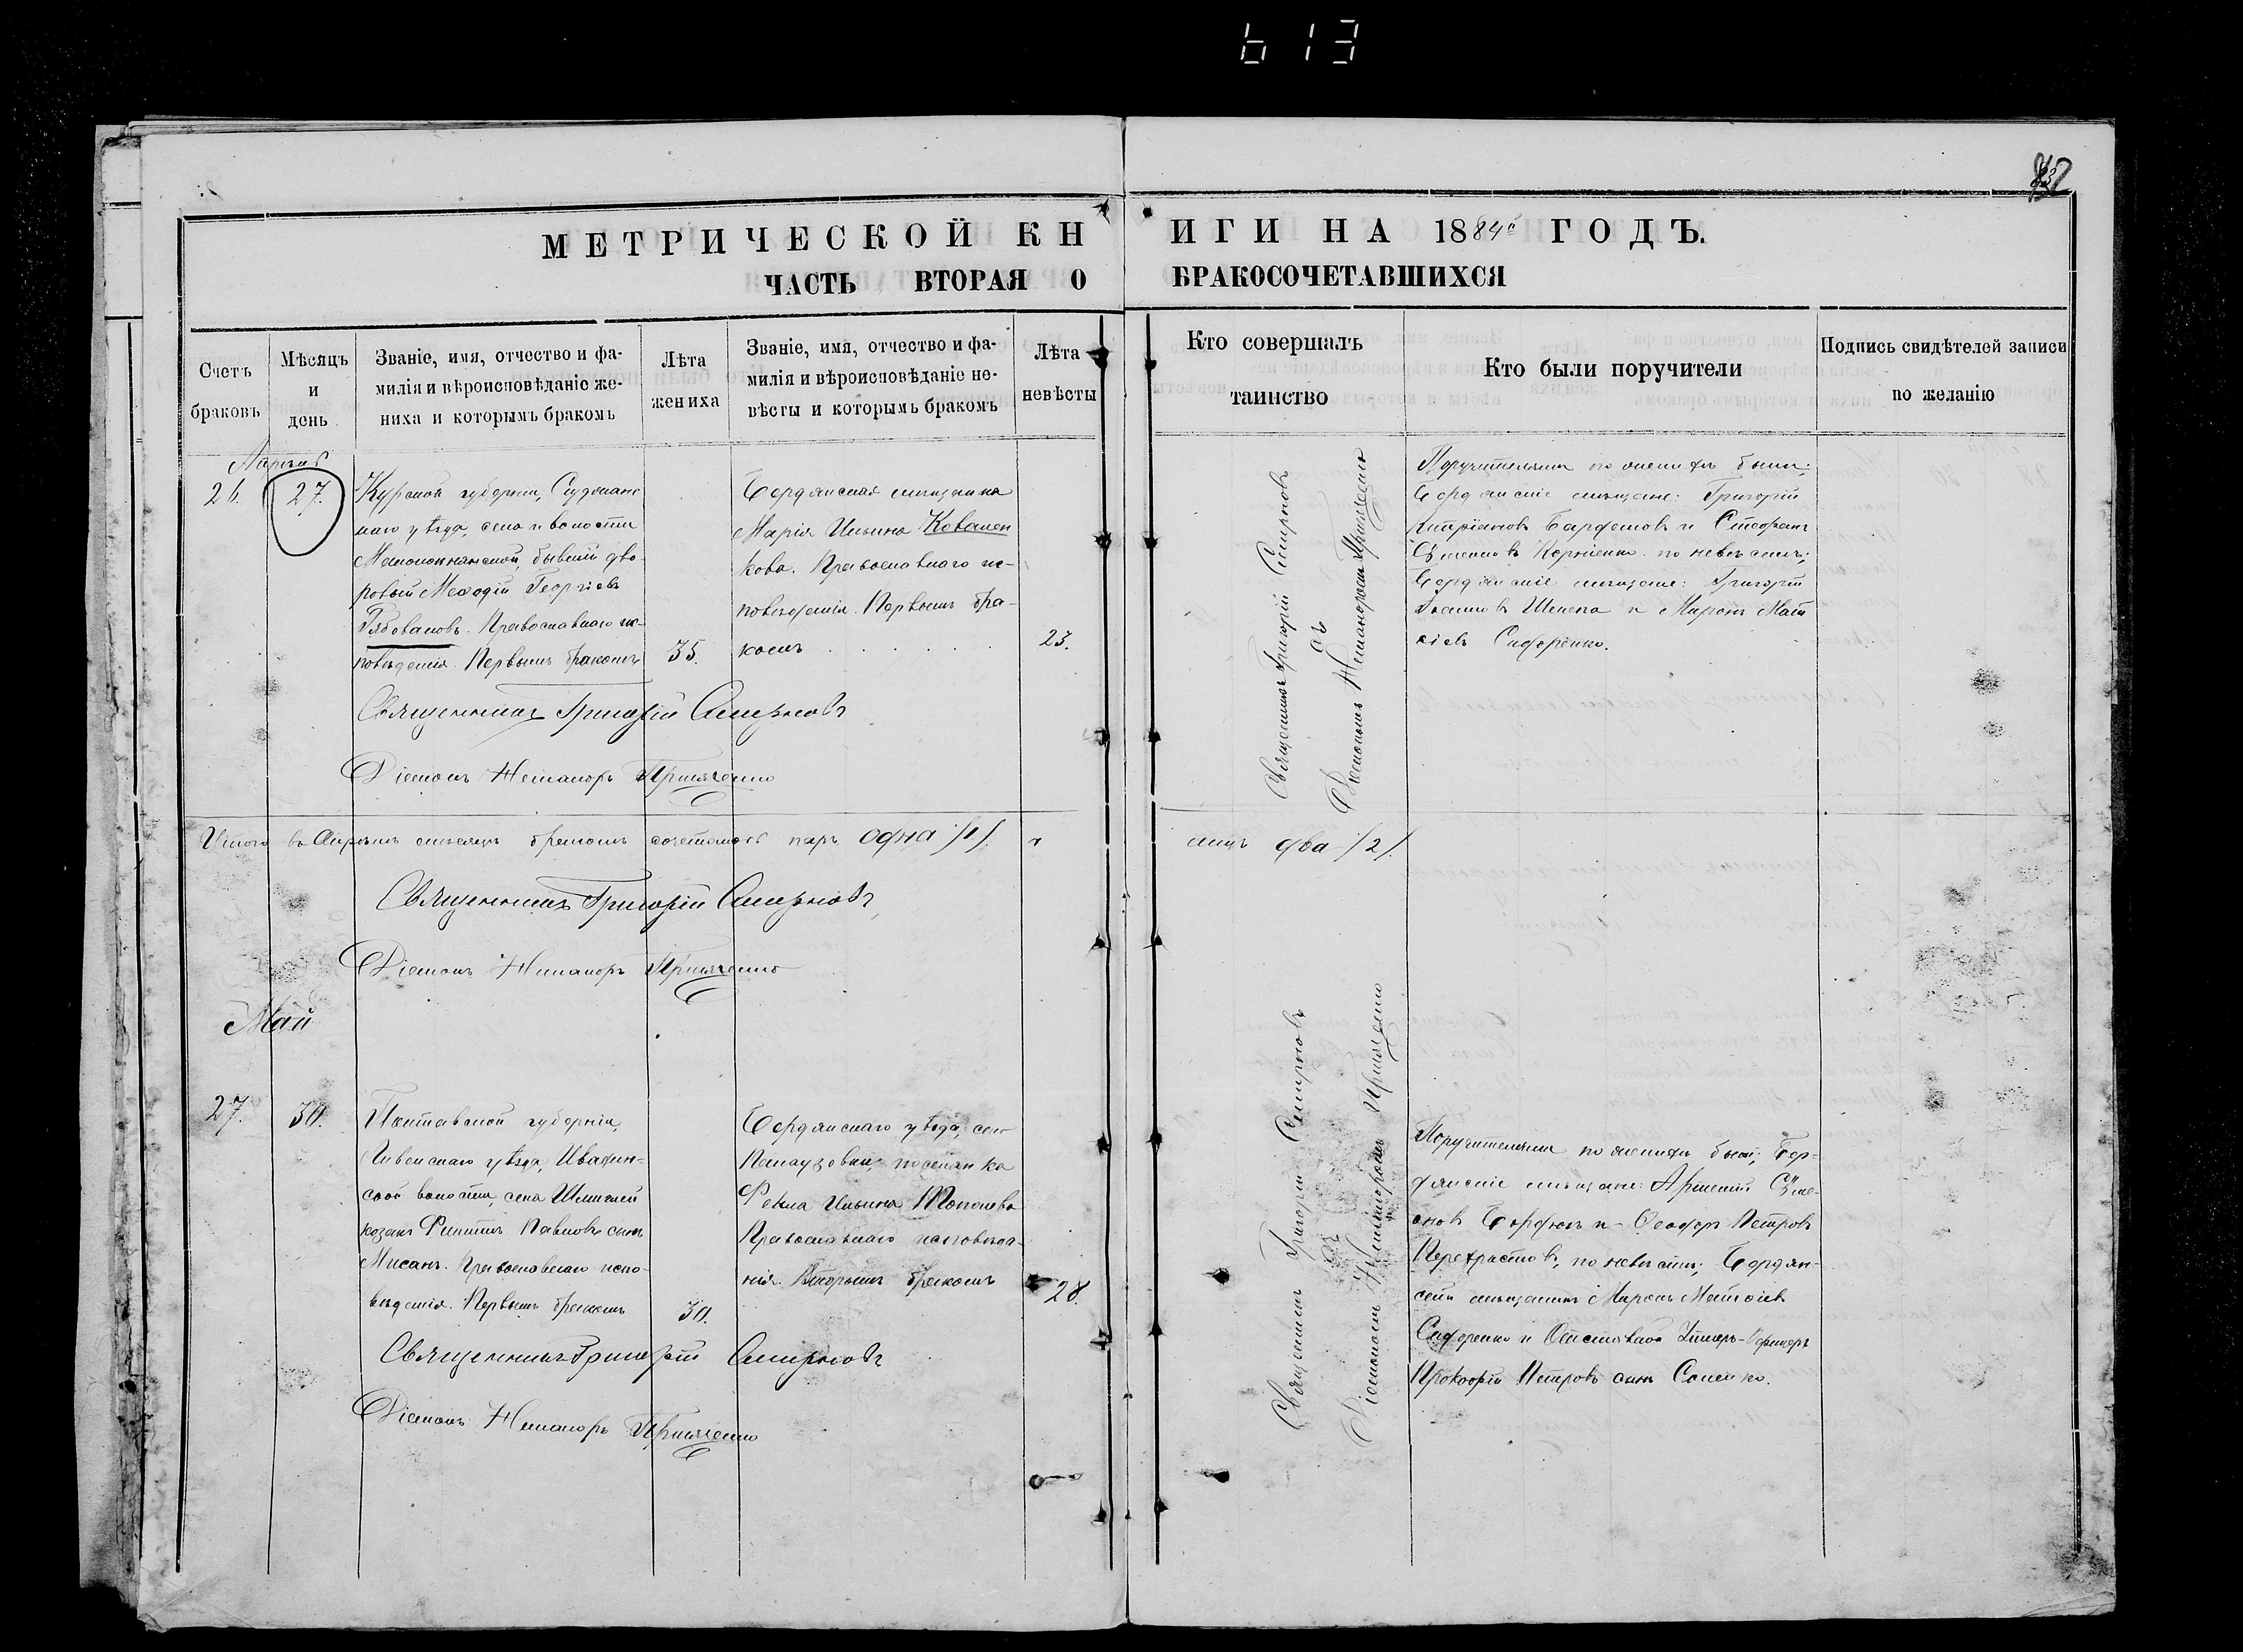 613
МЕТРИЧЕСКОЙ КНИГИ НА 1884й ГОДЪ.
ЧАСТЬ ВТОРАЯ О БРАКОСОЧЕТАВШИХСЯ
Счетъ браковъ
Мѣсяцъ и день
Званіе, имя, отчество и фа-
милія и вѣроисповѣданіе же-
ниха и которымъ бракомъ
Лѣта жениха
Званіе, имя, отчество и фа-
милія и вѣроисповѣданіе не-
вѣсты и которымъ бракомъ
Лѣта невѣсты
Кто совершалъ таинство
Кто были поручители
Подпись свидѣтелей записи
по желанію
Апрѣль
26.
27.
Курской губерніи, Суджанс
каго уѣзда, села и волости
бывшій дво-
ровый Меѳодій Георгіевъ
Рябовановъ. Православнаго ис-
повѣданія. Первымъ бракомъ
35.
Бердянская мѣщанка
Марія Ильина Ковален
кова. Православнаго ис-
повѣданія. Первымъ бра-
комъ
23.
Священникъ Григорій Смирновъ
съ
Діакономъ Никаноромъ
Поручителями по женихѣ были:
Бердянскіе мѣщане: Григорій
Стефанъ
Корніенко. по невѣстѣ:
Бердянскіе мѣщане: Григорій
Шепепа и Миронъ Мат
ѳіевъ Сидоренко.
Священникъ Григорій Смирновъ
Діаконъ Никаноръ
Итого въ Апрѣлѣ мѣсяцѣ бракомъ сочеталось паръ одна /1/. и
лицъ два /2/.
Священникъ Григорій Смирновъ
Діаконъ Никаноръ
Май
27.
30.
Полтавской губерніи,
уѣзда,
волости, села
козакъ Филиппъ Павловъ сынъ
Мисанъ. Православнаго испо-
вѣданія. Первымъ бракомъ
30.
Бердянскаго уѣзда, села
поселянка
Ѳекла Ильина Тополева
Православнаго исповѣда-
нія. Вторымъ бракомъ
28.
Священникъ Григорій Смирновъ
съ
Діакономъ Никаноромъ
Поручителями по женихѣ были: Бер-
дянскіе мѣщане: Арсеній Сѵме-
оновъ и Ѳеодоръ Петровъ
Перехрастовъ, по невѣстѣ: Бердян-
скій мѣщанинъ Миронъ Матѳіевъ
Сидоренко и Отставной Унтеръ-Офицеръ
Прокофій Петровъ сынъ
Священникъ Григорій Смирновъ
Діаконъ Никаноръ